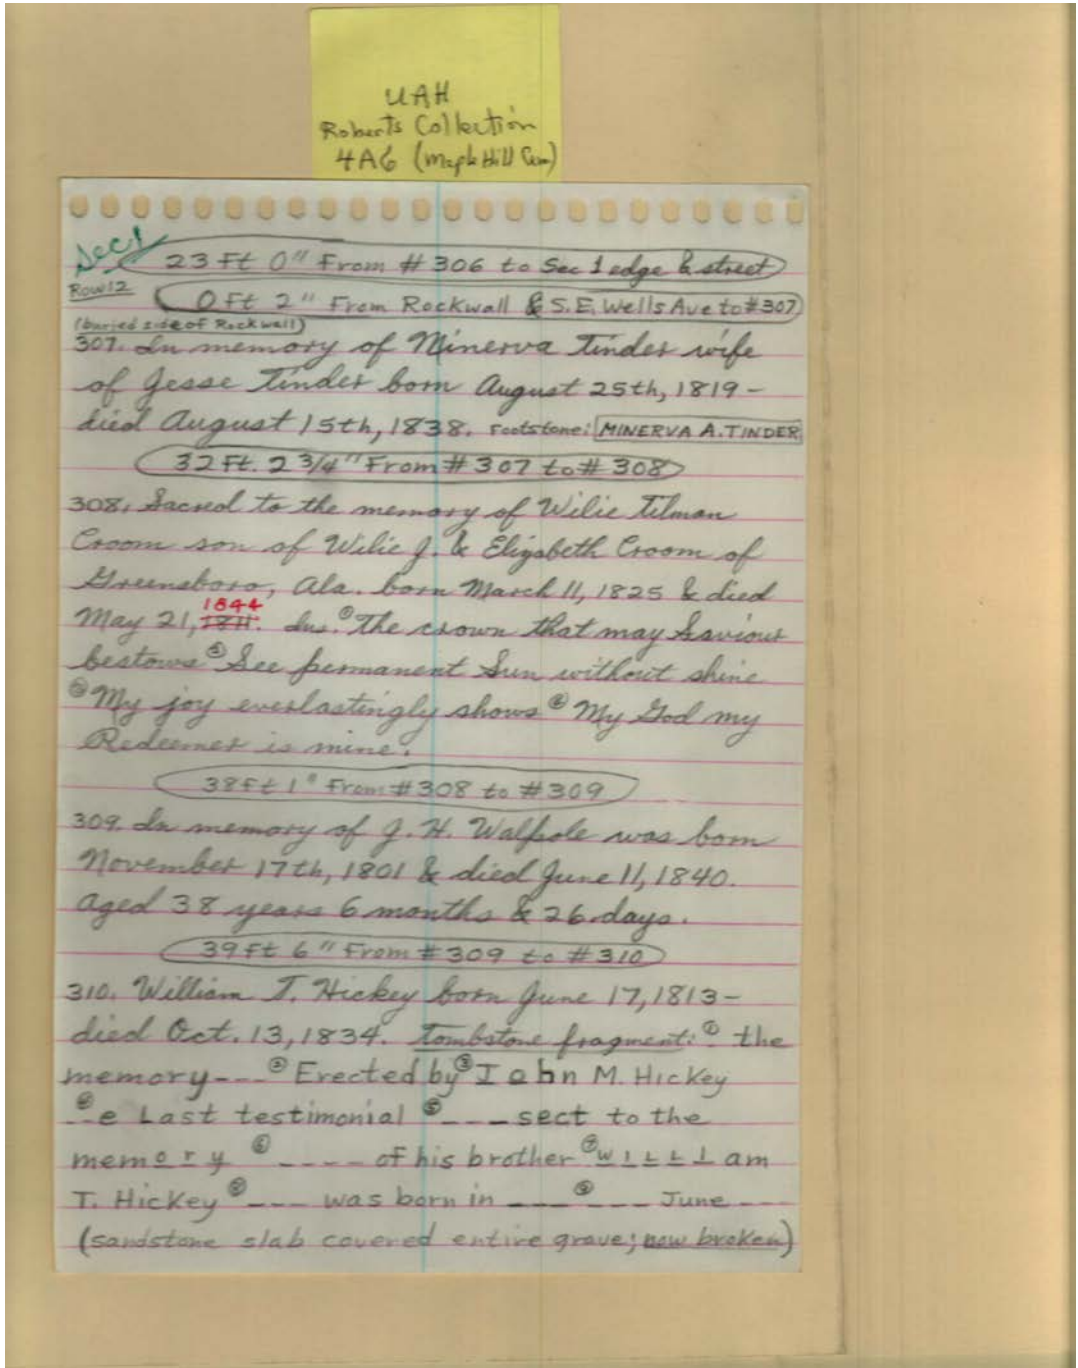 UAH
Roberts Collection
4A6 (Maple Hill Cem)
Sec 1
23 Ft 0" From # 306 to Sec 1 edge & street
Row 12
0 Ft 2" From Rockwall & S.E. Wells Ave to #307
(buried side of Rockwall)
307. In memory of Minerva Tinder wife
of Jesse Tinder born August 25th, 1819 –
died August 15th, 1838. Footstone: MINERVA A. TINDER
32 Ft. 2 3/4" From # 307 to # 308
308. Sacred to the memory of Wilie Tilman
Croom son of Wilie J. & Elizabeth Croom of
Greensboro, Ala. born March 11, 1825 & died
1844
May 21, 1811. Ins. ① The crown that may Saviour
bestows ② See permanent Sun without shine
③ My joy everlastingly shows ④ My God my
Redeemer is mine.
38 Ft 1" From # 308 to # 309
309. In memory of J. H. Walpole was born
November 17th, 1801 & died June 11, 1840.
aged 38 years 6 months & 26 days.
39 Ft 6" From # 309 to # 310
310. William T. Hickey born June 17, 1813 –
died Oct. 13, 1834. Tombstone fragment: ① the
memory --- ② Erected by ③ John M. Hickey
④ --e Last testimonial ⑤ ---- sect to the
memory ⑥ ---- of his brother ⑦ WILLIam
T. Hickey ⑧ --- was born in --- ⑨ --- June ---
(sandstone slab covered entire grave; now broken)